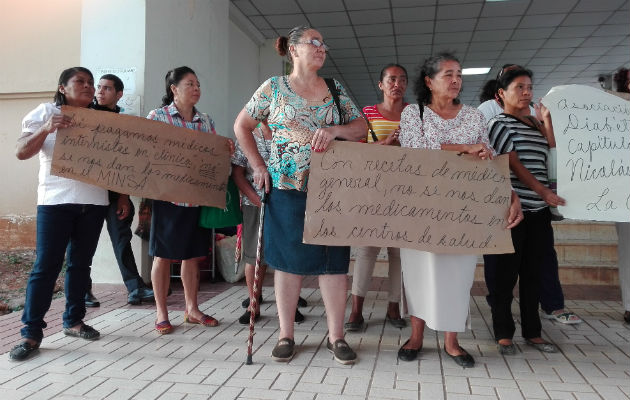 Si pagamos médicos
internistas en clínica, no
se nos dan los medicamentos
en el MINSA
Con recetas de médico
general, no se nos dan
los medicamentos en
los centros de salud.
Asociación
Diabét
Capítulo
Nicolás
La C